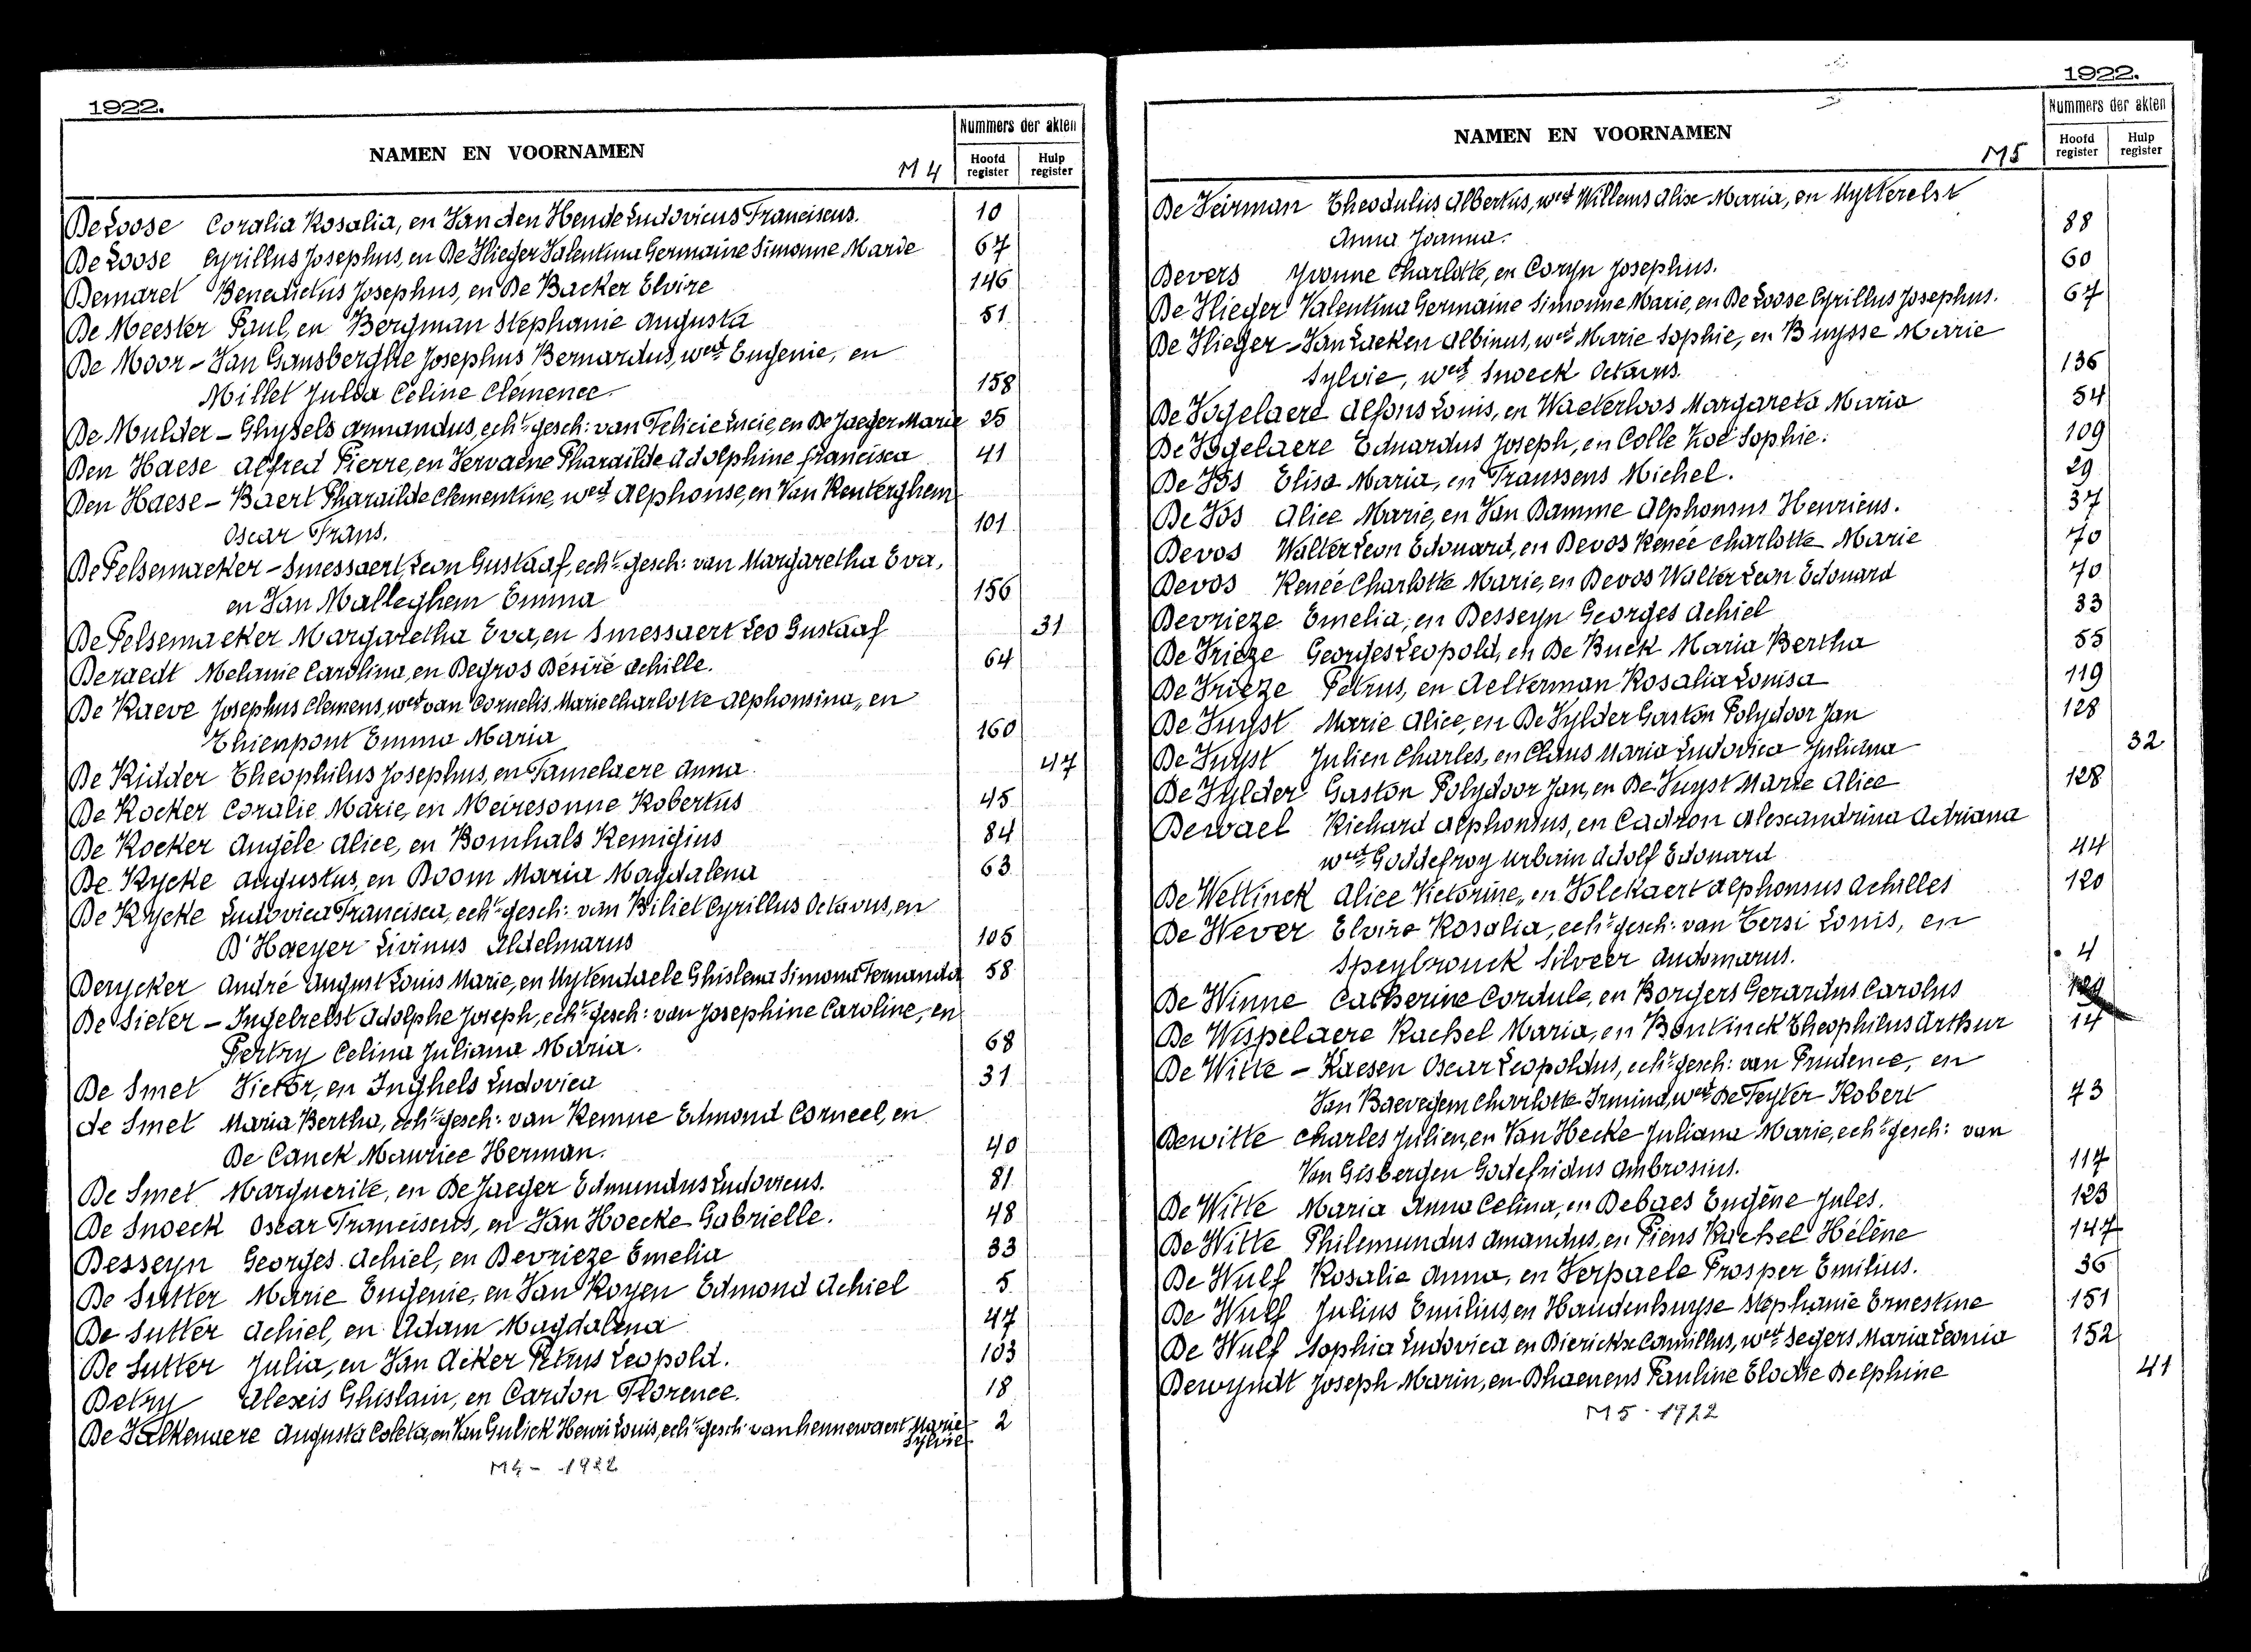 1922.
NAMEN EN VOORNAMEN M4 Nummers der akten
Hoofd register Hulp register
De Loose Coralia Rosalia, en Van den Hende Ludovicus Franciscus. 10
De Loose Cyrillus Josephus, en De Vlieger Valentina Germaine Simonne Marie 67
Demaret Benedictus Josephus, en De Backer Elvire 146
De Meester Paul, en Bergman Stephanie Augusta 51
De Moor - Van Gansberghe Josephus Bernardus, wed. Eugenie, en
Millet Julia Céline Clémence 158
De Mulder - Ghysels Armandus, echt. gesch: van Felicie Lucie, en De Jaeger Marie 25
Den Haese Alfred Pierre, en Vervaene Pharaïlde Adolphine Francisca 41
Den Haese - Baert Pharaïlde Clementine, wed. Alphonse, en Van Renterghem
Oscar Frans. 101
De Pelsemaeker - Smessaert, Leon Gustaaf, echt. gesch: van Margaretha Eva,
en Van Malleghem Emma 156
De Pelsemaeker Margaretha Eva, en Smessaert Leo Gustaaf 31
Deraedt Melanie Carolina, en Degros Désiré Achille. 64
De Raeve Josephus Clemens, wed. van Cornelis Marie Charlotte Alphonsina, en
Thienpont Emma Maria 160
De Ridder Theophilus Josephus, en Tamelaere Anna 47
De Rocker Coralie Marie, en Meiresonne Robertus 45
De Rocker Angèle Alice, en Bomhals Remigius 84
De Rycke Augustus, en Boom Maria Magdalena 63
De Rycke Ludovica Francisca, echt. gesch: van Biliet Cyrillus Octavus, en
D'Haeyer Livinus Aldelmarus 105
Derycker André August Louis Marie, en Uytendaele Ghislena Simona Fernanda 58
De Sieter - Ingelrelst Adolphe Joseph, echt. gesch: van Josephine Caroline, en
Pertry Celina Juliana Maria. 68
De Smet Victor, en Inghels Ludovica 31
de Smet Maria Bertha, echt. gesch: van Remue Edmond Corneel, en
De Canck Maurice Herman. 40
De Smet Marguerite, en De Jaeger Edmundus Ludovicus. 81
De Snoeck Oscar Franciscus, en Van Hoecke Gabrielle. 48
Desseyn Georges Achiel, en Devrieze Emelia 33
De Sutter Marie Eugenie, en Van Royen Edmond Achiel 5
De Sutter Achiel, en Adam Magdalena 47
De Sutter Julia, en Van Acker Petrus Leopold. 103
Detry Alexis Ghislain, en Cardon Florence. 18
De Valkenaere Augusta Coleta, en Van Gulick Henri Louis, echt. gesch. van hennewaert Marie 2
Sylvie
M4 - 1922
1922.
NAMEN EN VOORNAMEN M5 Nummers der akten
Hoofd register Hulp register
De Veirman Theodulius Albertus, wed. Willems Alixe Maria, en Uytterelst
Anna Joanna. 88
Devers Yvonne Charlotte, en Coryn Josephus. 60
De Vlieger Valentina Germaine Simonne Marie, en De Loose Cyrillus Josephus. 67
De Vlieger - Van Laeken Albinus, wed. Marie Sophie, en Buysse Marie
Sylvie, wed. Snoeck Octavus. 136
De Vogelaere Alfons Louis, en Waeterloos Margareta Maria 54
De Vogelaere Eduardus Joseph, en Colle Zoë Sophie. 109
De Vos Elisa Maria, en Franssens Michel. 29
De Vos Alice Marie, en Van Damme Alphonsus Henricus. 37
Devos Walter Leon Edouard, en Devos Renée Charlotte Marie 70
Devos Renée Charlotte Marie, en Devos Walter Leon Edouard 70
Devrieze Emelia, en Desseyn Georges Achiel 33
De Vrieze Georges Leopold, en De Buck Maria Bertha 55
De Vrieze Petrus, en Aelterman Rosalia Louisa 119
De Vuyst Marie Alice, en De Vylder Gaston Polydoor Jan 128
De Vuyst Julien Charles, en Claus Maria Ludovica Juliana 32
De Vylder Gaston Polydoor Jan, en De Vuyst Marie Alice 128
Dewael Richard Alphonsus, en Cadron Alexandrina Adriana
wed. Goddefroy Urbain Adolf Edouard 44
De Wettinck Alice Victorine, en Volckaert Alphonsus Achilles 120
De Wever Elvire Rosalia, echt. gesch: van Tersi Louis, en
Speybrouck Silveer Audomarus. 4
De Winne Catherine Cordule, en Borgers Gerardus Carolus
De Wispelaere Rachel Maria, en Bontinck Theophilus Arthur 14
De Witte - Raesen Oscar Leopoldus, echt. gesch: van Prudence, en
Van Baevegem Charlotte Irmina, wed. De Feyter Robert 73
Dewitte Charles Julien, en Van Hecke Juliana Marie, echt. gesch: van
Van Gisbergen Godefridus Ambrosius. 117
De Witte Maria Anna Celina, en Debaes Eugène Jules. 123
De Witte Philemundus Amandus, en Piens Rachel Hélène 147
De Wulf Rosalie Anna, en Verpaele Prosper Emilius. 36
De Wulf Julius Emilius, en Haudenhuyse Stéphanie Ernestine 151
De Wulf Sophia Ludovica en Dierickx Camillus, wed. Segers Maria Leonia 152
Dewyndt Joseph Marin, en Dhaenens Pauline Elodie Delphine 41
M5 - 1922